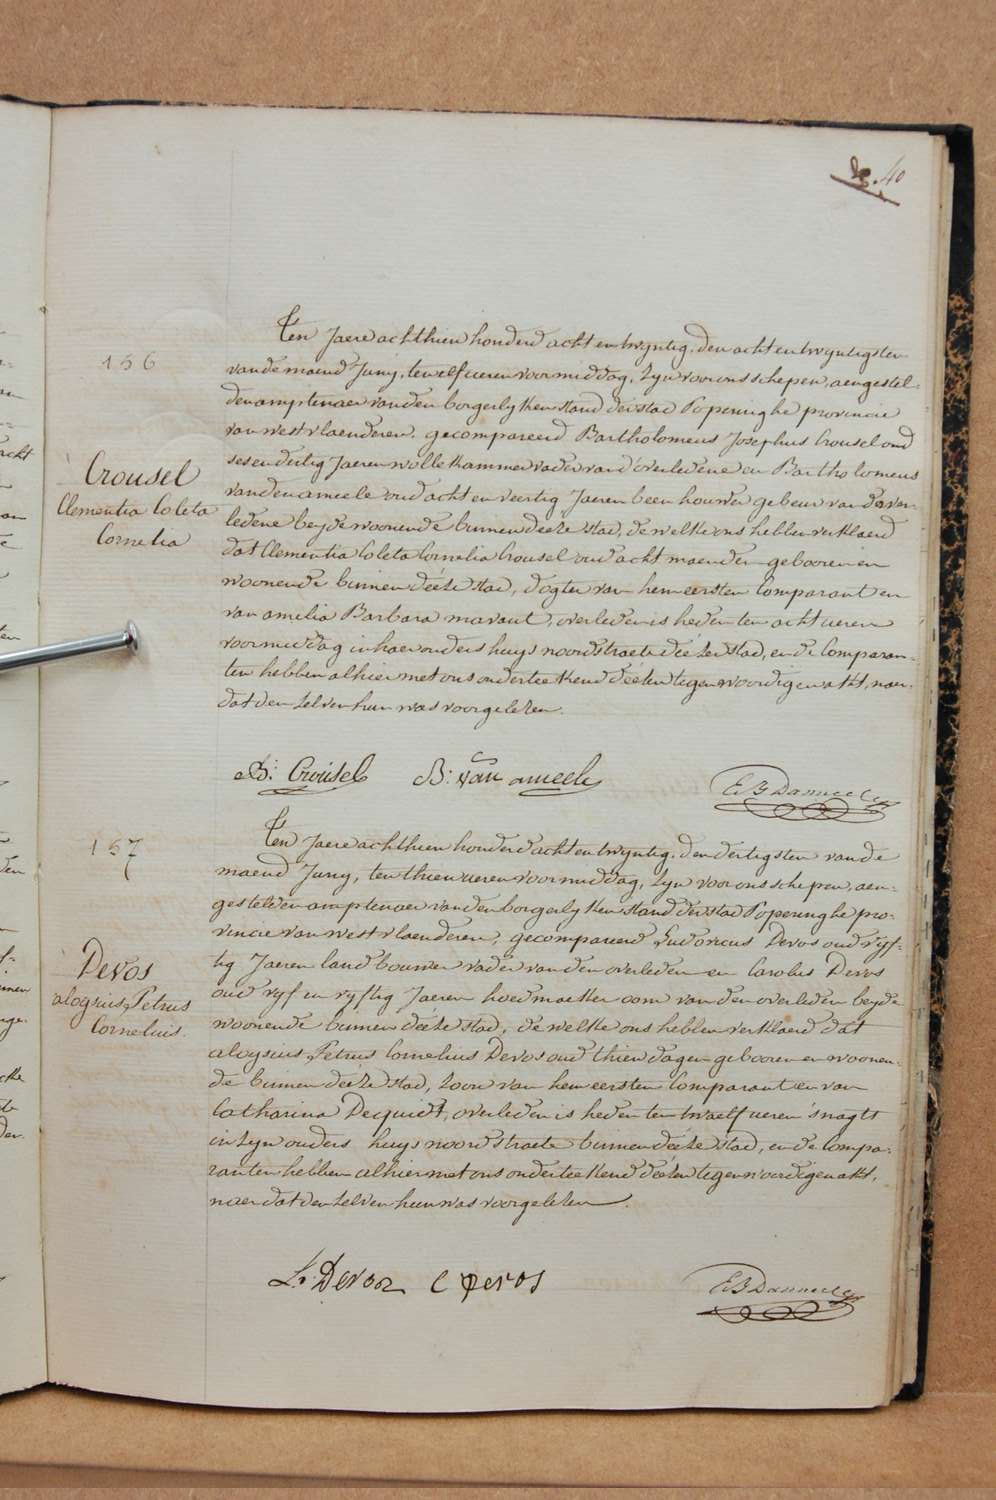 40
156
Crousel
Clementia Coleta
Cornelia
Ten Jaere achthien honderd acht en twyntig, den acht en twyntigsten
van de maend Juny, ten elf ueren voormiddag, zyn voor ons schepen, aengestel-
den amptenaer van den borgerlyken stand der stad Poperinghe provincie
van west vlaenderen, gecompareerd Bartholomeus Josephus Crousel oud
ses en dertig Jaeren wolle kammer vader van d'overledene en Bartholomeus
vanden ameele oud acht en veertig Jaeren been houwer gebeur van d'over-
ledene beyde woonende binnen deéze stad, de welke ons hebben verklaerd
dat Clementia Coleta Cornelia Crousel oud acht maenden geboren en
woonende binnen deéze stad, dogter van hem eersten Comparant en
van amelia Barbara maraut, overleden is heden ten acht ueren
voormiddag in haer ouders huys noordstraete deézer stad, en de Comparan-
ten hebben alhier met ons onderteekend déézen tegenwoordigen akt, naer
dat den zelven hun was voorgelezen.
B: Crousel B: van ameele E B Danneel
157
Devos
aloysius Petrus
Cornelius.
Ten Jaere achthien honderd acht en twyntig, den dertigsten van de
maend Juny, ten thien ueren voormiddag, zyn voor ons schepen, aen-
gestelden amptenaer van den borgerlyken stand der stad Poperinghe pro-
vincie van west vlaenderen, gecompareerd Ludovicus Devos oud vyf-
tig Jaeren landbouwer vader van den overleden en Carolus Devos
oud vyf en vyftig Jaeren hoedmaeker oom van den overleden beyde
woonende binnen deéze stad, de welke ons hebben verklaerd dat
aloysius Petrus Cornelius Devos oud thien dagen geboren en woonen-
de binnen deéze stad, zoon van hem eersten Comparant en van
Catharina Decquidt, overleden is heden ten twaelf ueren s'nagts
in zyn ouders huys noordstraete binnen deéze stad, en de Compa-
ranten hebben alhier met ons onderteekend deézen tegenwoordigen akt,
naer dat den zelven hun was voorgelezen.
L: Devos C Devos E B Danneel